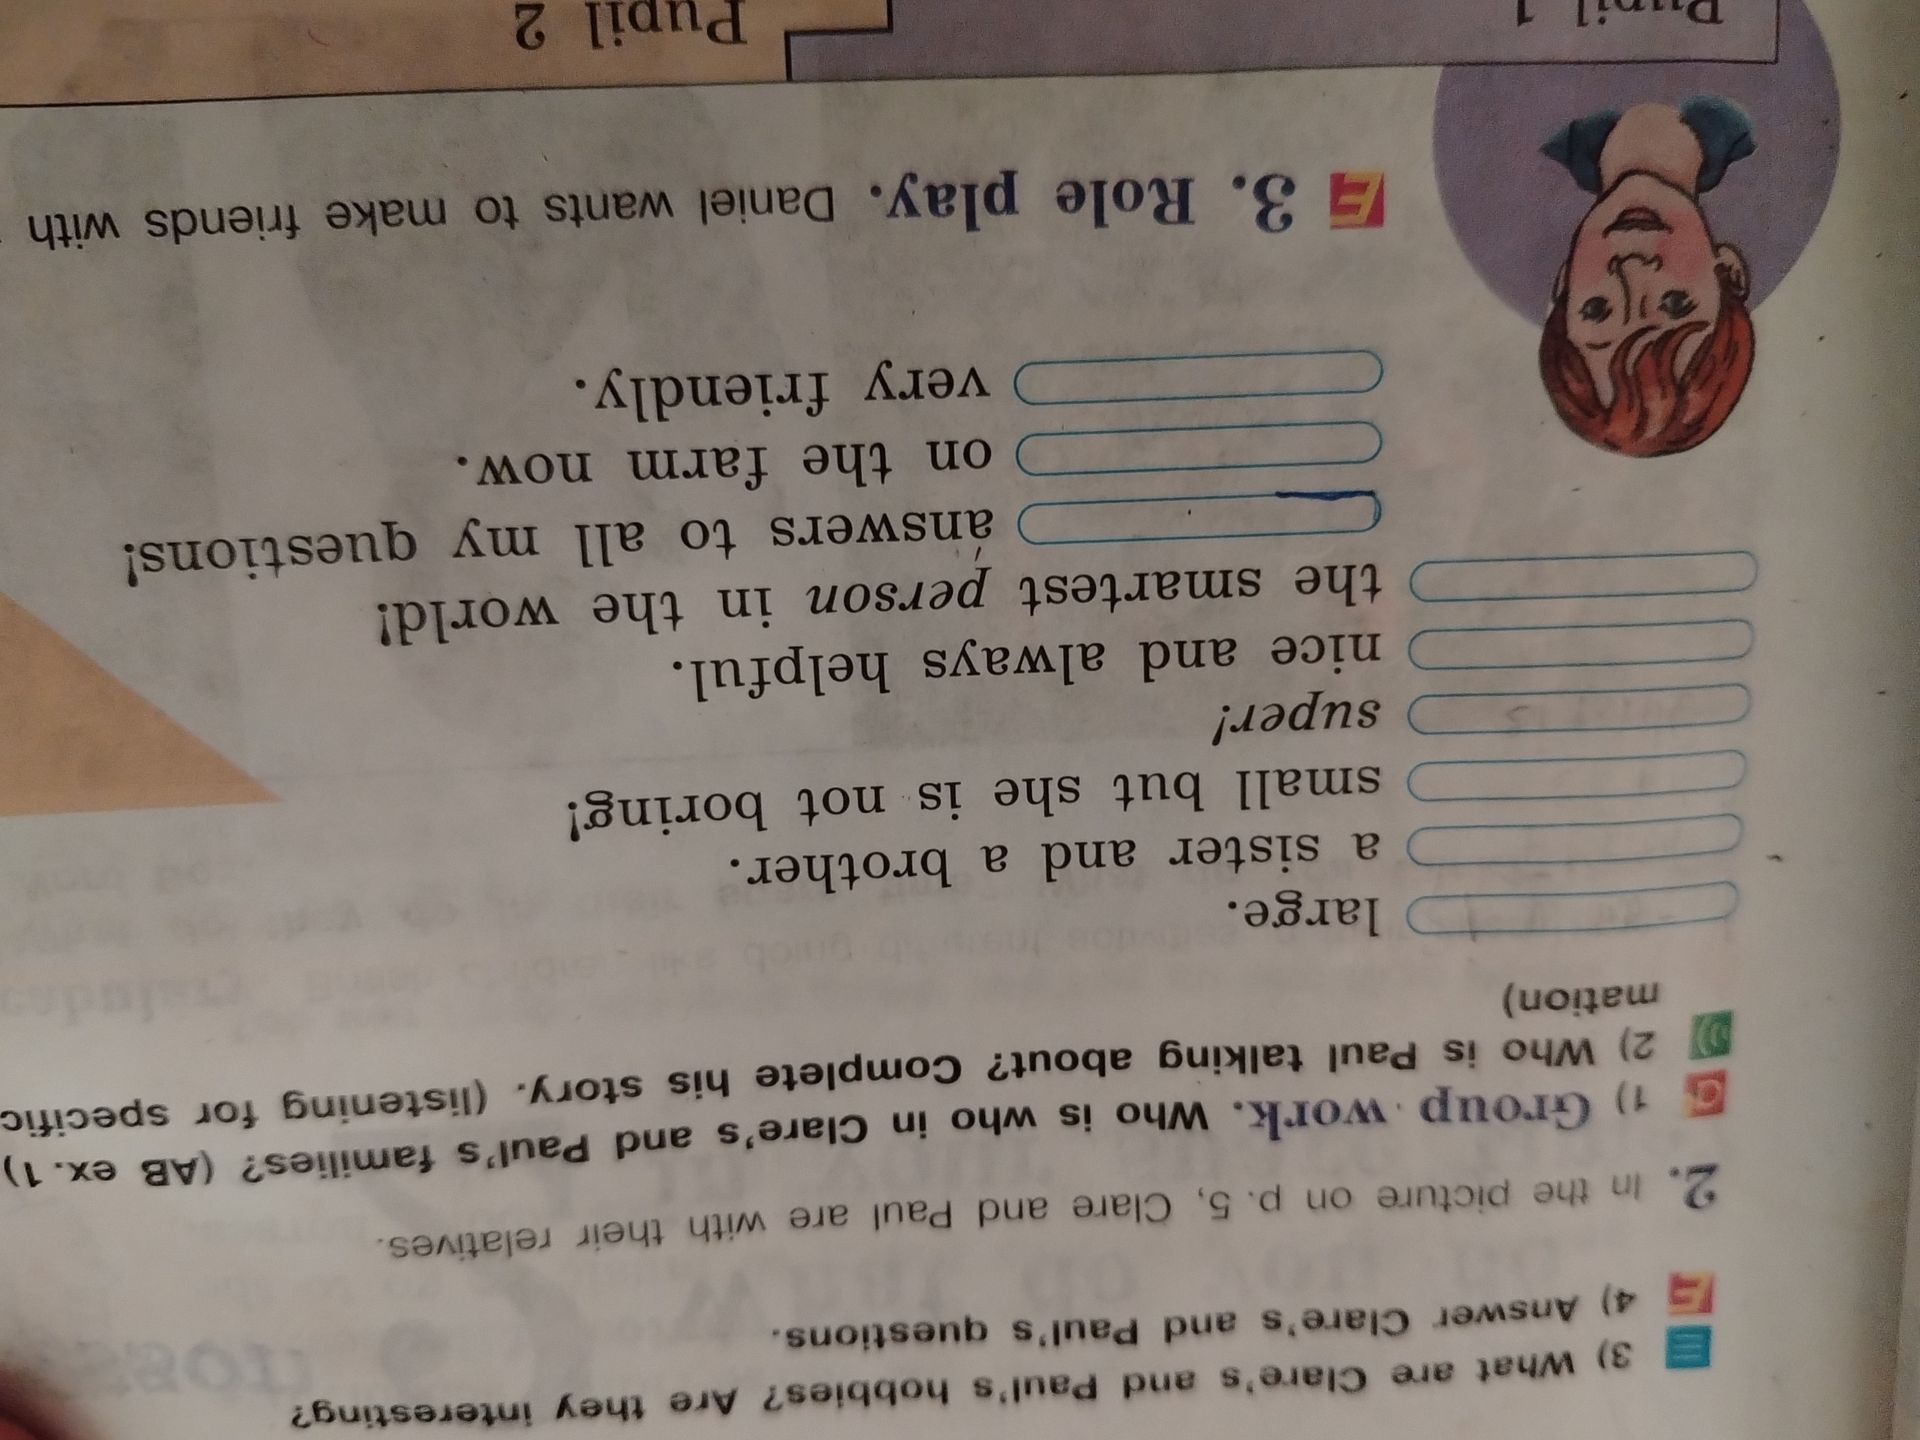 3) What are Clare's and Paul's hobbies? Are they interesting?
4) Answer Clare's and Paul's questions.
2. In the picture on p. 5, Clare and Paul are with their relatives.
1) Group work. Who is who in Clare's and Paul's families? (AB ex. 1)
2) Who is Paul talking about? Complete his story. (listening for specific
mation)
large.
a sister and a brother.
small but she is not boring!
super!
nice and always helpful.
the smartest person in the world!
answers to all my questions!
on the farm now.
very friendly.
3. Role play. Daniel wants to make friends with
Pupil 1
Pupil 2